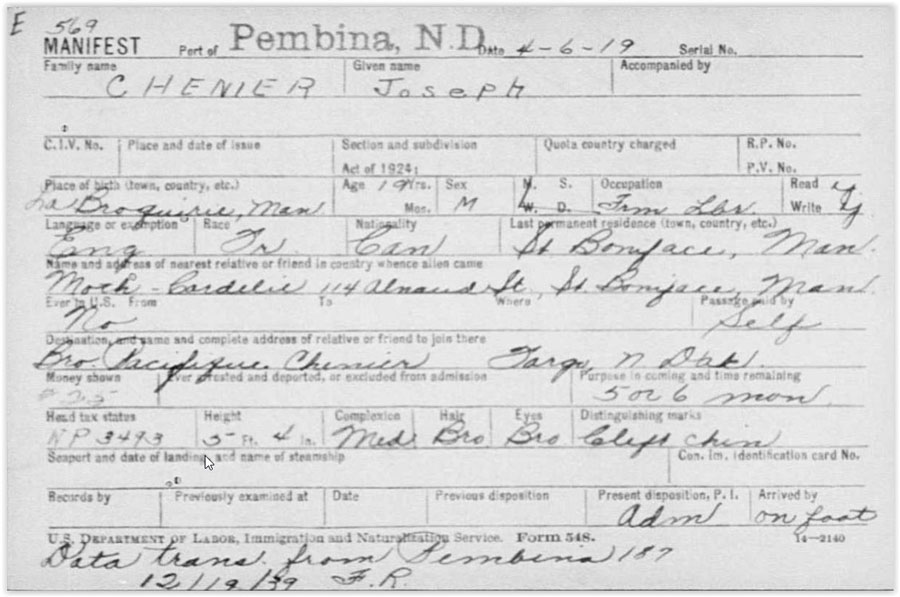 E 569
MANIFEST Port of Pembina, N.D. Date 4-6-19 Serial No.
Family name Given name Accompanied by
CHENIER Joseph
C.I.V. No. Place and date of issue Section and subdivision Quota country charged R.P. No.
Act of 1924: P.V. No.
Place of birth (town, country, etc.) Age 19 Yrs. Sex M. S. Occupation Read y
La Broquirie, Man. Mos. M W. D. Frm Lbr Write y
Language or exemption Race Nationality Last permanent residence (town, country, etc.)
Eng Fr. Can St. Boniface, Man.
Name and address of nearest relative or friend in country whence alien came
Moth - Cordelie 114 St., St. Boniface, Man.
Ever in U.S. From To Where Passage paid by
No Self
Destination, and name and complete address of relative or friend to join there
Bro. Pacifique Chenier Fargo, N. Dak.
Money shown Ever arrested and deported, or excluded from admission Purpose in coming and time remaining
25 5 or 6 mon
Head tax status Height Complexion Hair Eyes Distinguishing marks
NP 3493 5 Ft. 4 In. Med Bro Bro Cleft chin
Seaport and date of landing, and name of steamship Con. Im. Identification card No.
Records by Previously examined at Date Previous disposition Present disposition, P. I. Arrived by
Adm on foot
U.S. Department of Labor, Immigration and Naturalization Service. Form 548. 14—2140
Data trans. from Pembina 187
12/19/39 F.R.